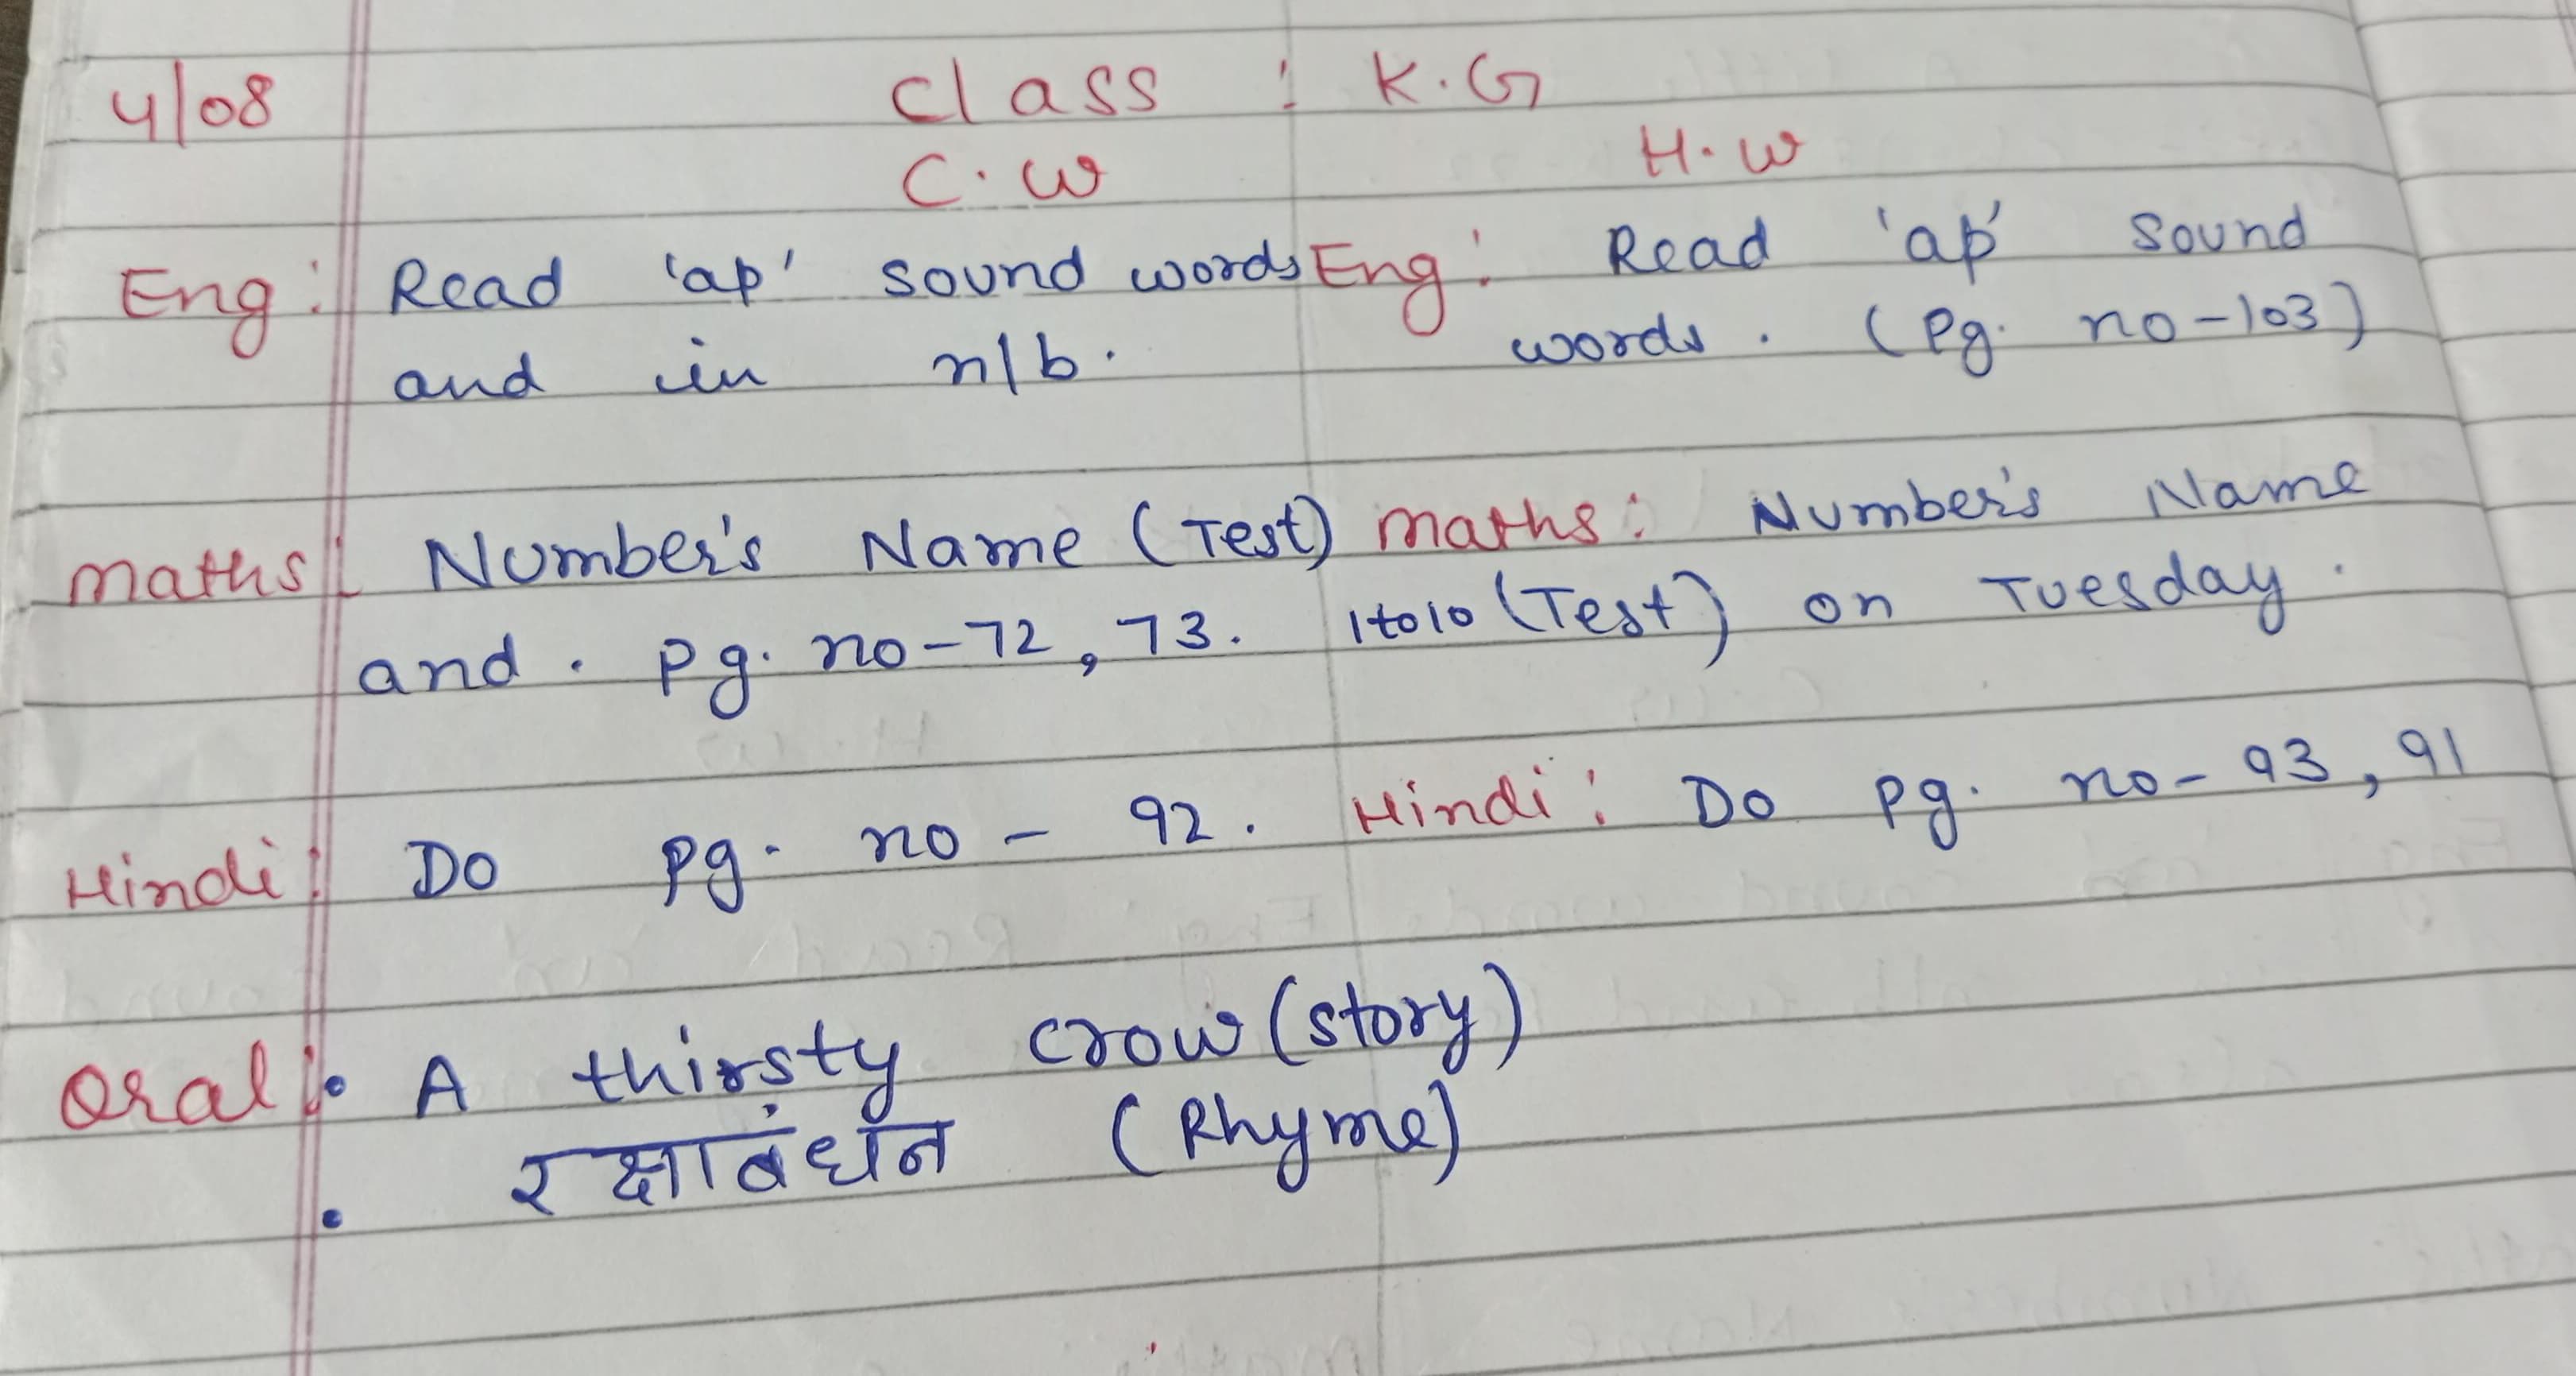 4/08 Class : K.G
C.W H.W
Eng: Read 'ap' sound words Eng: Read 'ap' sound
and in n/b. words. (Pg. no-103)
Maths: Number's Name (Test) Maths: Number's Name
and. Pg. no-72, 73. 1to10 (Test) on Tuesday.
Hindi: Do Pg. no - 92. Hindi: Do Pg. no- 93, 91
Oral: • A thirsty crow (story)
• रक्षाबंधन (Rhyme)